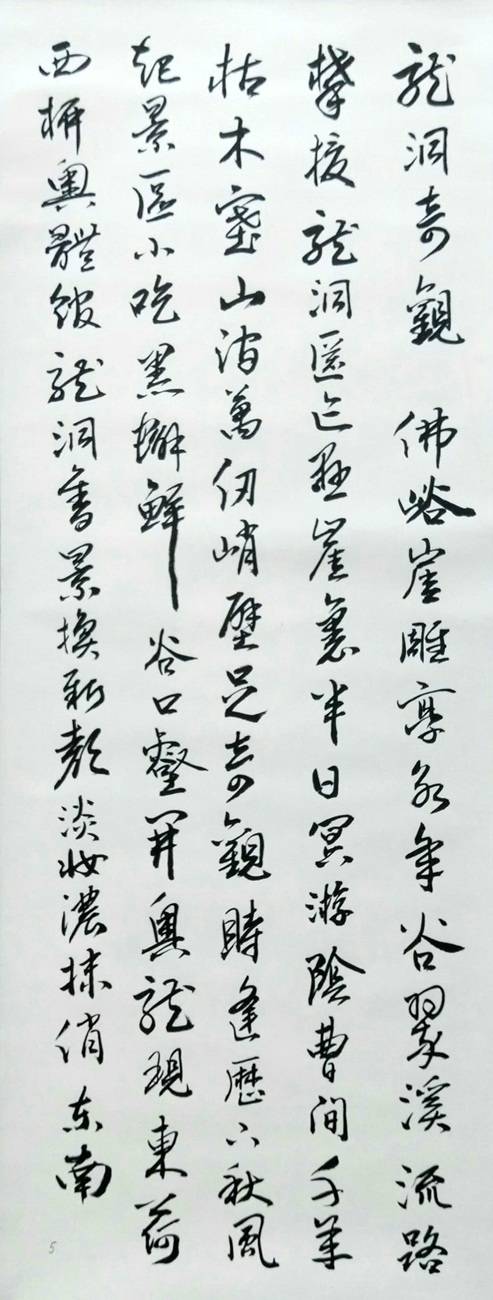 龍洞奇觀 佛峪崖雕享永年谷翠溪流路
攀援龍洞匿亡懸崖裏半日冥游陰曹间千年
枯木山萬仞峭壁足奇觀時逢歷下秋風
起景區小吃黑鮮 谷口壑開奥龍現東荷
西柳奥體館龍洞舊景換新顏淡妝濃抹俏东南
5